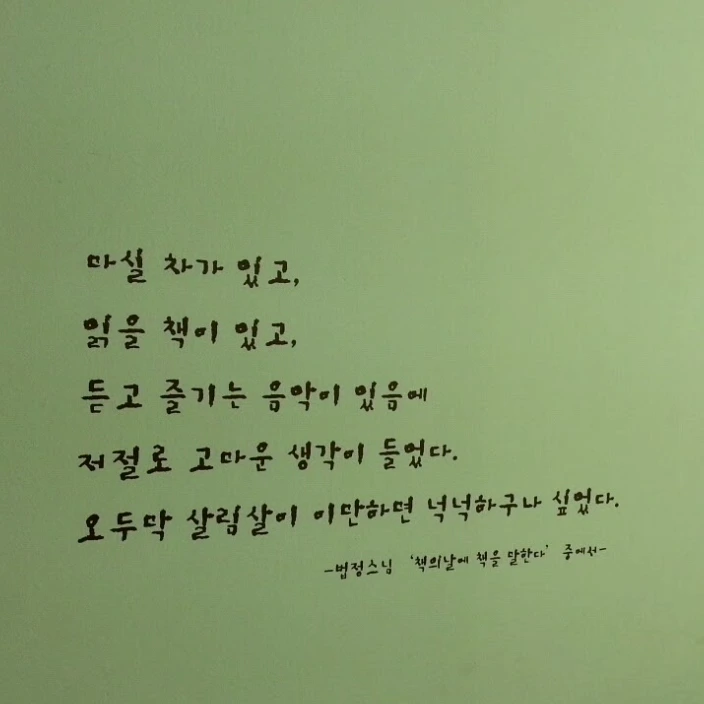 마실 차가 있고,
읽을 책이 있고,
듣고 즐기는 음악이 있음에
저절로 고마운 생각이 들었다.
오두막 살림살이 이만하면 넉넉하구나 싶었다.
-법정스님 '책의날에 책을 말한다' 중에서-